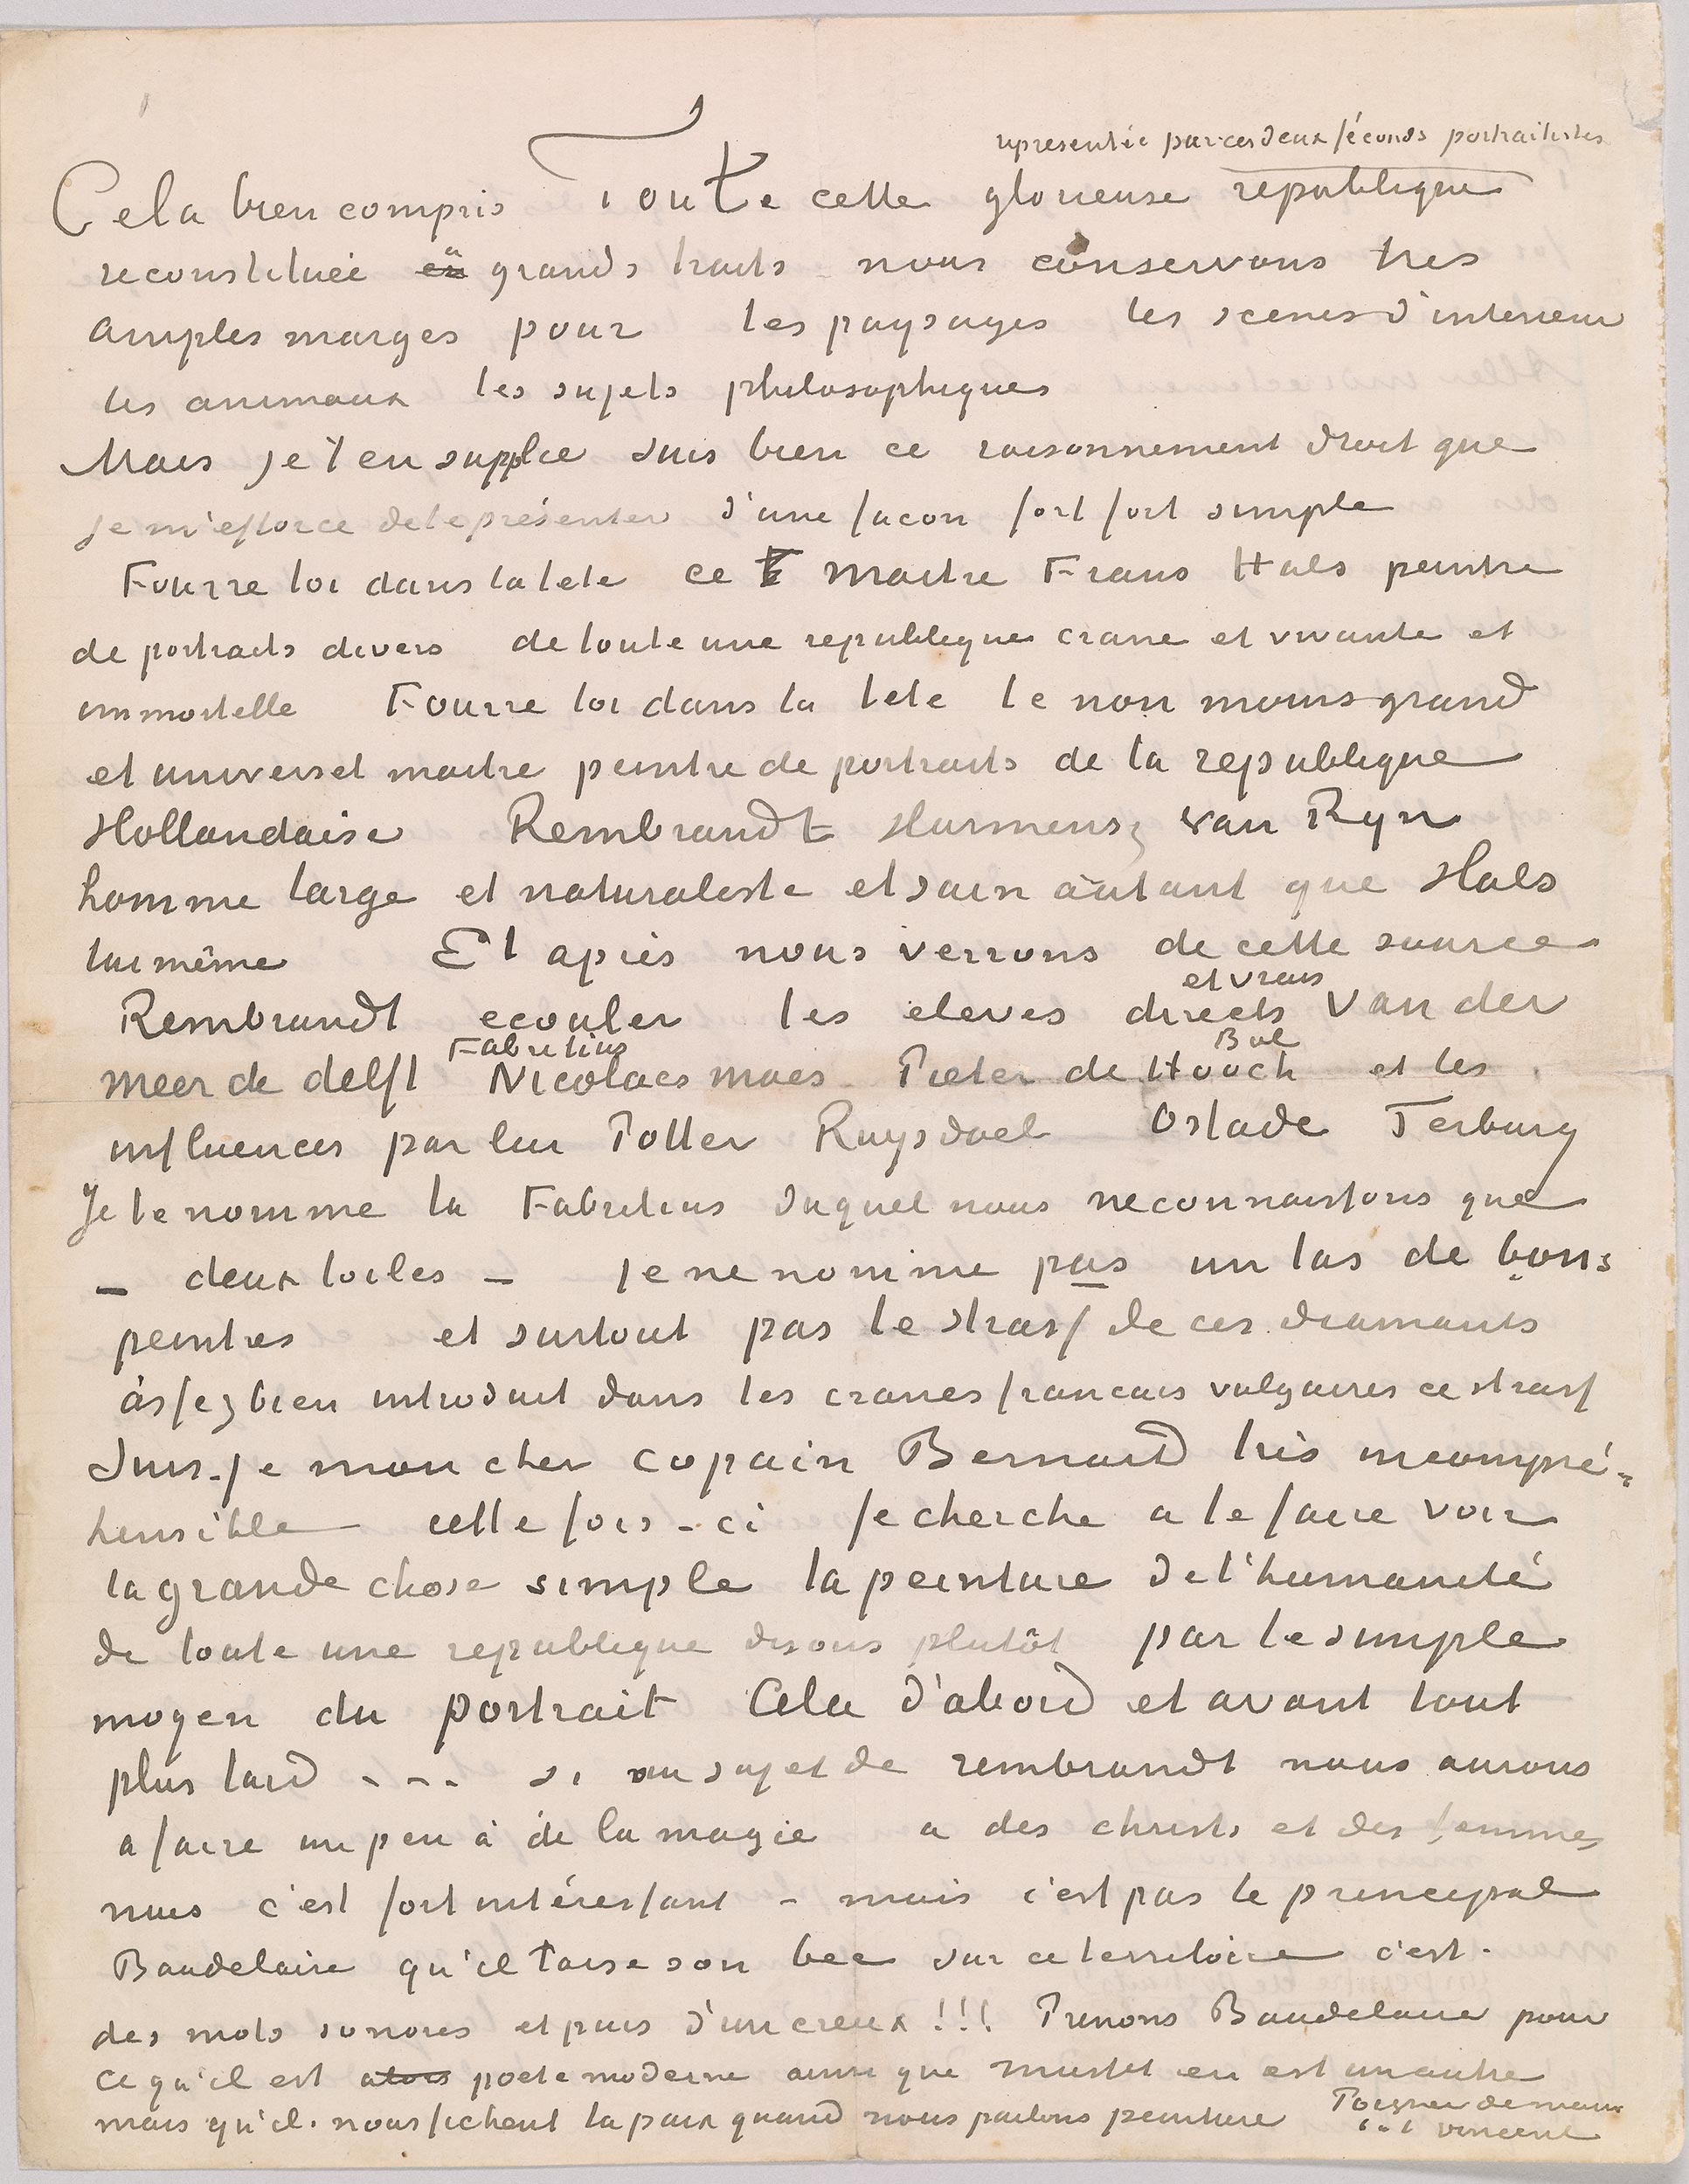 representée par ces deux féconds portraitistes
Cela bien compris Toute cette glorieuse republique
reconstituée en à grands traits nous conservons tres
amples marges pour les paysages les scenes d'interieur
les animaux les sujets philosophiques
Mais je t'en supplie suis bien ce raisonnement droit que
je m'efforce de te présenter d'une facon fort fort simple
Fourre toi dans la tete ce maitre Frans Hals peintre
de portraits divers de toute une republique crane et vivante et
immortelle Fourre toi dans la tete le non moins grand
et universel maitre peintre de portraits de la republique
Hollandaise Rembrandt Harmensz van Ryn
homme large et naturaliste et sain autant que Hals
lui même Et après nous verrons de cette source
et vrais
Rembrandt ecouler les eleves directs Van der
Fabritius Bol
Meer de delft Nicolaes maes Pieter de Hooch et les
influences par lui Potter Ruysdael Ostade Terburg
Je te nomme la Fabritius duquel nous ne connaissons que
– deux toiles – je ne nomme pas un tas de bons
peintres et surtout pas le strass de ces diamants
assez bien introduit dans les cranes francais vulgaires ce strass
Suis-je mon cher copain Bernard très incompré=
hensible cette fois-ci je cherche a te faire voir
la grande chose simple la peinture de l'humanité
de toute une republique disons plutôt par le simple
moyen du portrait Cela d'abord et avant tout
plus tard - - - si au sujet de rembrandt nous aurons
a faire un peu à de la magie a des christs et des femmes
nues c'est fort intéressant – mais c'est pas le principal
Baudelaire qu'il taise son bec sur ce territoire c'est
des mots sonores et puis d'un creux !!! Prenons Baudelaire pour
ce qu'il est alors poete moderne ainsi que musset en est un autre
mais qu'il nous fichent la paix quand nous parlons peinture Poignée de main
t. à t. Vincent